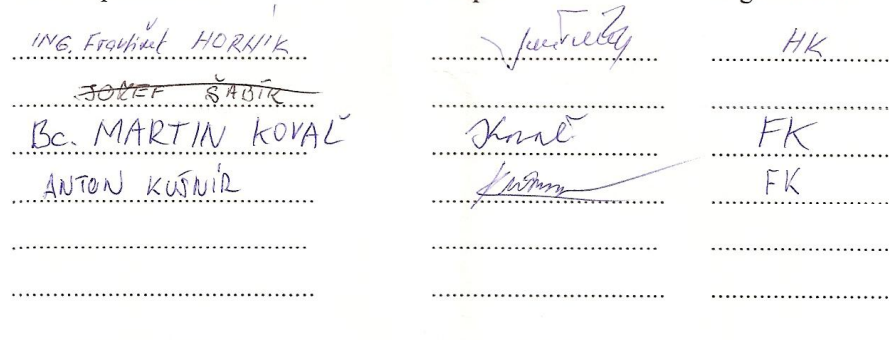 ING. František HORNÍK HK
JOZEF ŠABÍK
Bc. MARTIN KOVAĽ Kovaľ FK
ANTON KUŠNÍR FK